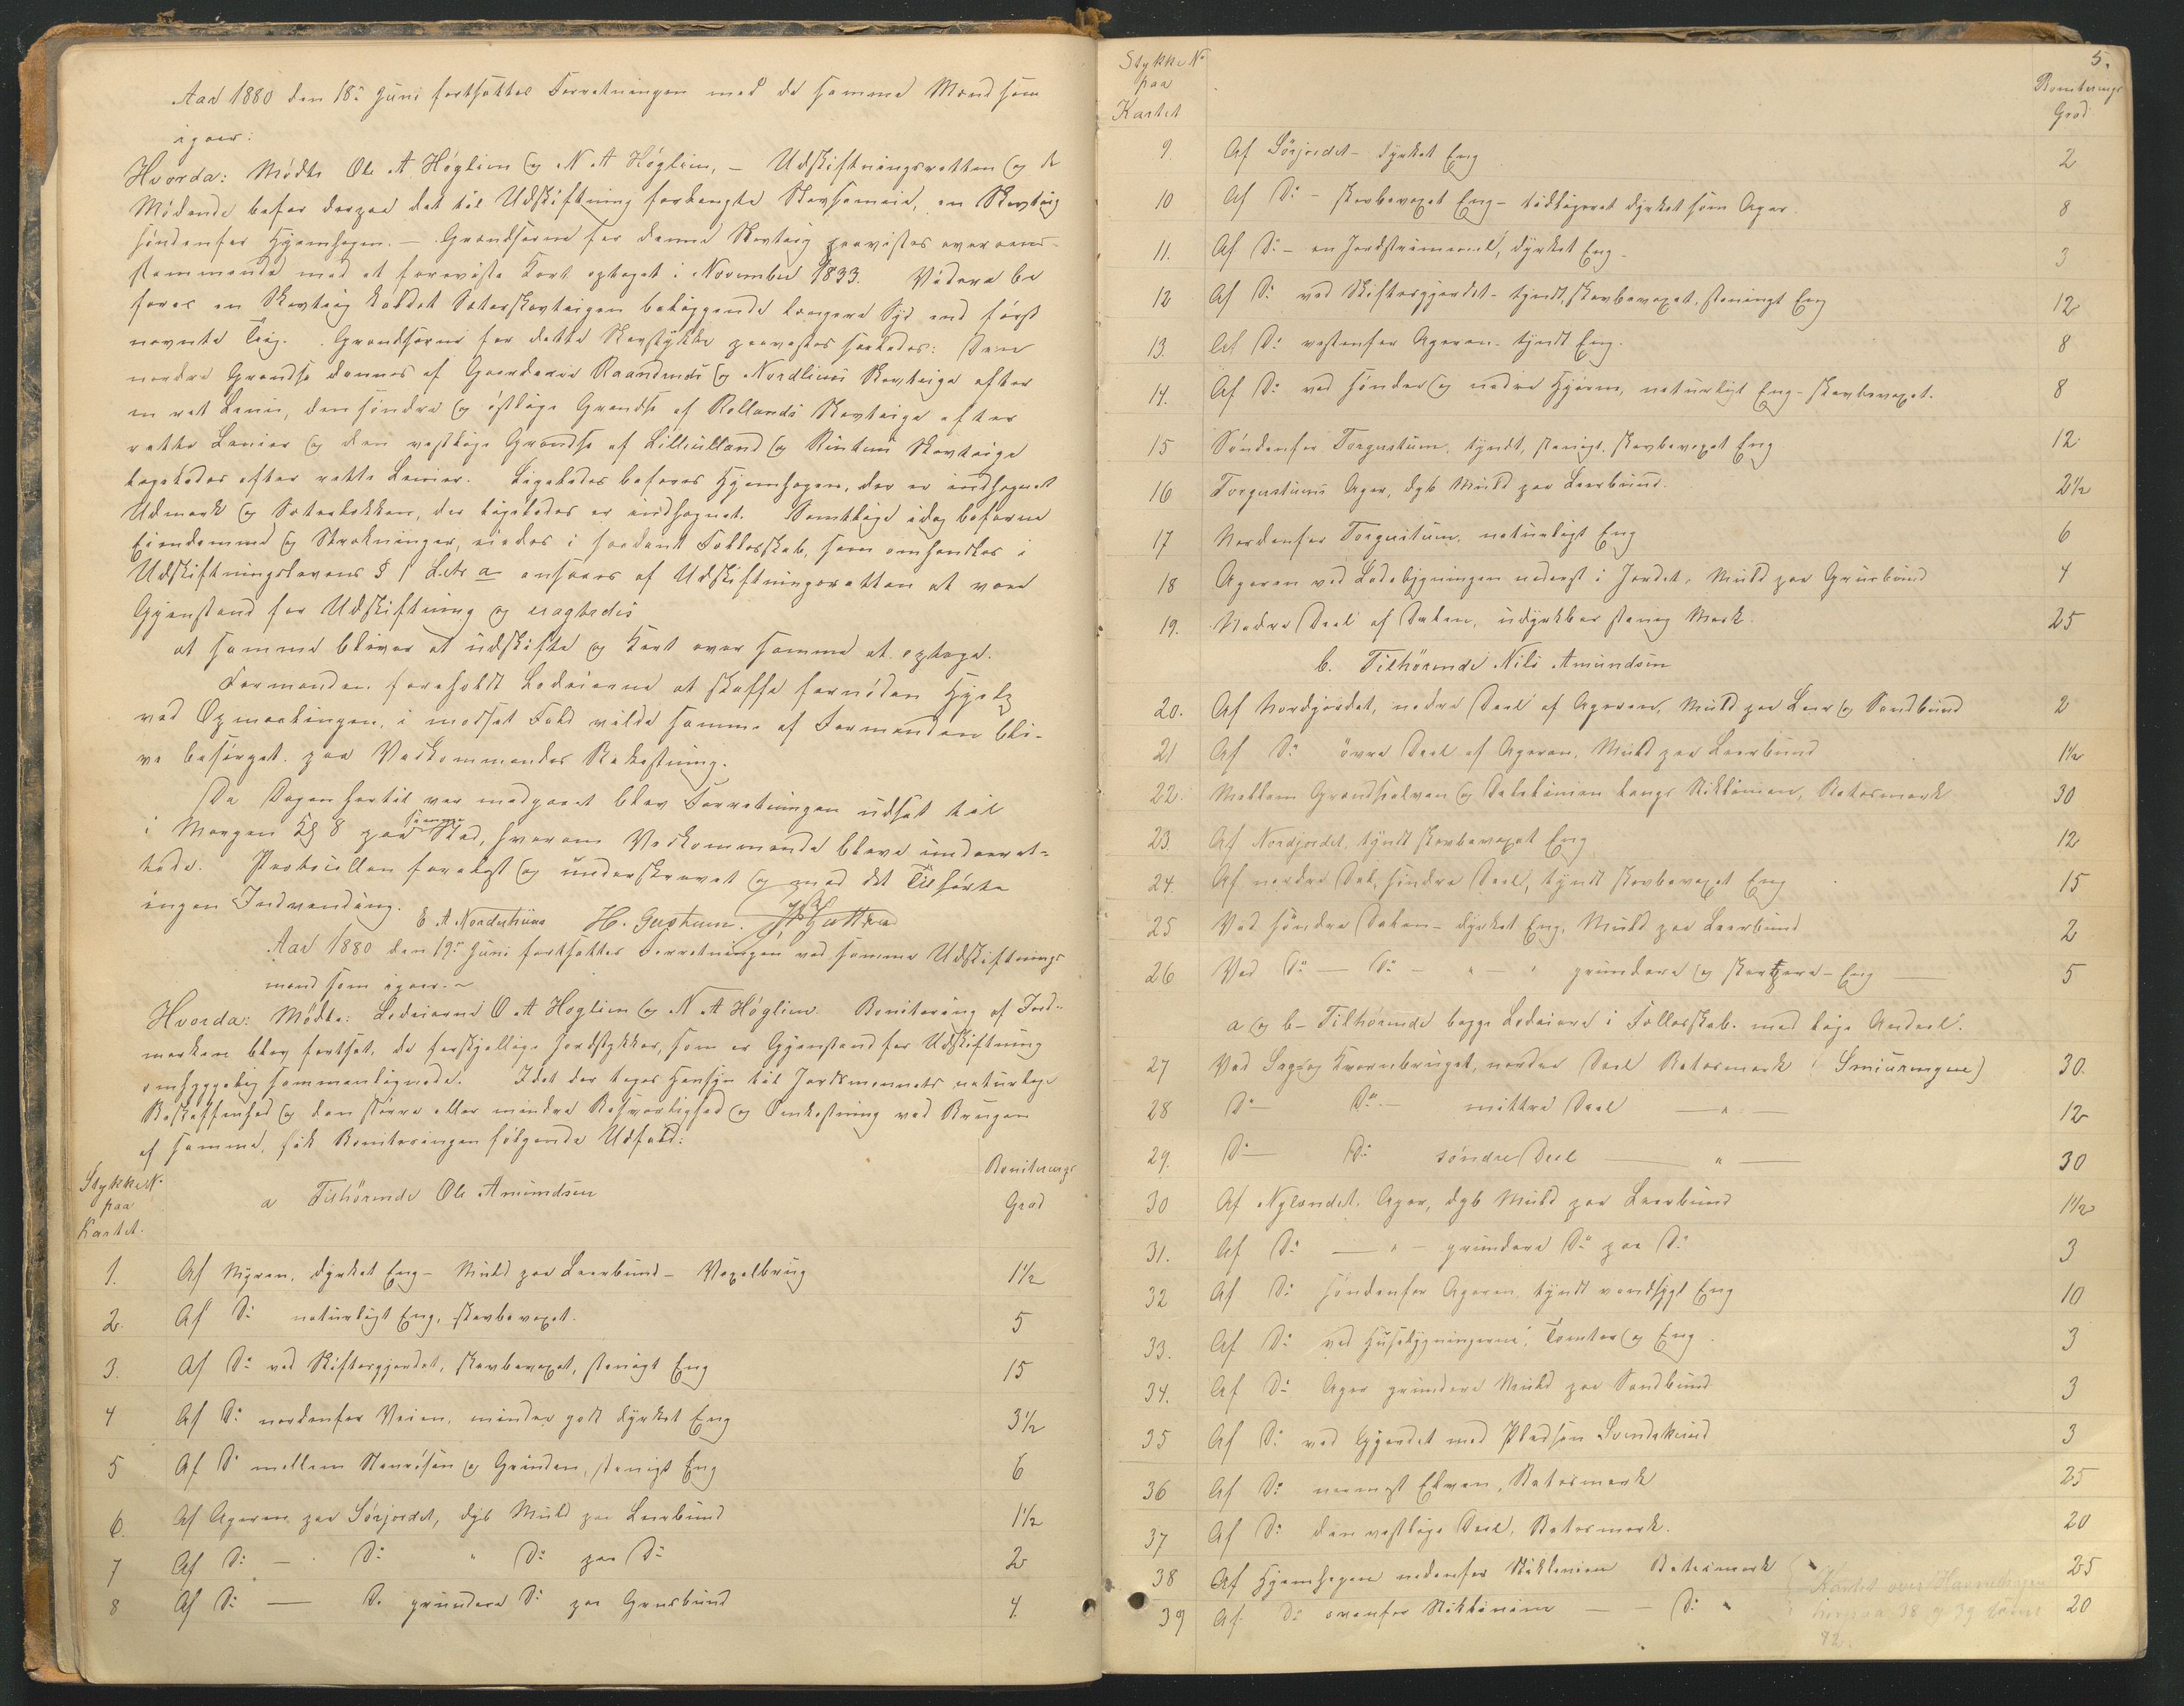 Aar 1880 den 18de Juni fortsattes Forretningen med de samme Mænd som
igaar:
Hvorda: Mødte Ole A. Høglien og N A Høglien, – Udskiftningsretten og de
Mødende befor derpaa det til Udskiftning forlangte Skovsameie, en Skovteig
søndenfor Hjemhagen. – Grændserne for denne Skovteig paavistes overeens-
stemmende med et foreviste Kart optaget i November 1833. Videre be
fores en Skovteig kaldet Sæterskovteigen beliggende længere Syd end først
nævnte Teig. Grændserne for dette Skovstykke paavistes saaledes: Den
nordre Grændse dannes af Gaardene Raamunds og Nordliens Skovteige efter
en ret Linie, den søndre og østlige Grændse af Rollands Skovteige efter
rette Linier og den vestlige Grændse af Lilleulland og Skovteige
ligeledes efter rette Linier. Ligeledes befores Hjemhagen, der er indhegnet
Udmark og Sæterløkken, der ligeledes er indhegnet. Samtlige idag befarne
Eiendomme og Strækninger, eiedes i saadant Fællesskab, som omhandles i
Udskiftningslovens § 1 Litr a ansaaes af Udskiftningsretten at være
Gjenstand for Udskiftning og eragtedes
at samme bliver at udskifte og Kart over samme at optage.
Formanden foreholdt Lodeierne at skaffe fornøden Hjælp
ved Opmaalingen, i modsat Fald vilde samme af Formanden bli-
ve besørget paa Vedkommendes Bekostning.
Da Dagen hertil var medgaaet blev Forretningen udsat til
i Morgen Kl 8 paa samme Sted, hvorom Vedkommende bleve underret-
tede. Protocollen forelæst og underskrevet og mod det Tilførte
ingen Indvending.
E A Norderhuus H. Gustum.
Aar 1880 den 19de Juni fortsattes Forretningen ved samme Udskiftnings
mænd som igaar. –
Hvorda: Mødte: Lodeierne O A Høglien og N A Høglien. Bonitering af Ind-
marken blev fortsat, de forskjellige Jordstykker, som er Gjenstand for Udskiftning
omhyggelig sammenlignede. Idet der toges Hensyn til Jordsmonnets naturlige
Beskaffenhed og den større eller mindre Besværlighed og Omkostning ved Brugen
af samme, fik Boniteringen følgende Udfald:
Stykke N.
paa
Kartet.
a Tilhörende Ole Amundsen
Boniterings
Grad
1. Af Myren, dyrket Eng – Muld paa Leerbund – Vexelbrug 1½
2. Af Do naturligt Eng, skovbevoxet. 5
3. Af Do ved Skiftesgjerdet, skovbevoxet, stenigt Eng 15
4 Af Do nordenfor Veien, mindre godt dyrket Eng 3½
5 Af Do mellem og Grinden, stenigt Eng 6
6. Af Ageren paa Sørjordet, dyb Muld paa Leerbund 1½
7 Af Do – Do " Do paa Do 2
8 Af Do – Do grundere Do paa Gruusbund 4.
5.
Stykke No
paa
Kartet
Boniterings
Grad
9 Af Sörjordet – dyrket Eng 2
10 Af Do – skovbevoxet Eng – tidligere dyrket som Ager. 8
11. Af Do – en Jordstrimmel, dyrket Eng – 3
12 Af Do ved Skiftesgjerdet – tyndt, skovbevoxet, stenigt Eng 12
13. Af Do vestenfor Ageren – tyndt Eng. 8
14. Af Do ved søndre og nedre Hjørne, naturligt Eng – skovbevoxet. 8
15 Söndenfor Torgustuen, tyndt, stenigt, skovbevoxet Eng 12
16 Torgustuens Ager, dyb Muld paa Leerbund. 2½
17 Nordenfor Torgustuen, naturligt Eng 6
18 Ageren ved Ladebygningen nederst i Jordet, Muld paa Gruusbund 4
19. Nedre Deel af Dalen, udyrkbar stenig Mark. 25
b. Tilhörende Nils Amundsen
20. Af Nordjordet, nedre Deel af Ageren, Muld paa Leer og Sandbund 2
21 Af Do övre Deel af Ageren, Muld paa Leerbund 1½
22. Mellem Grændseelven og Delelinien langs Stiklinien, Beitesmark 30
23. Af Nordjordet, tyndt skovbevoxet Eng 12
24. Af nordre Dal, søndre Deel, tyndt skovbevoxet Eng 15
25 Ved søndre Dalen – dyrket Eng, Muld paa Leerbund 2
26 Ved Do – Do – " – " grundere og skarpere – Eng 5
a og b – Tilhörende begge Lodeiere i Fællesskab med lige Andeel.
27 Ved Sag og Kværnbruget, nordre Deel Beitesmark (Smiurengene) 30.
28 Do Do – mittre Deel " 12
29. Do Do søndre Deel " 30
30 Af Nylændet, Ager, dyb Muld paa Leerbund 1½
31. Af Do – " – grundere Do paa Do 3
32 Af Do søndenfor Ageren, tyndt vandsygt Eng 10
33. Af Do ved Husebygningerne, Tomter og Eng. 3
34. Af Do Ager grundere Muld paa Sandbund 3
35 Af Do ved Gjerdet mod Pladsen 3
36 Af Do nærmest Elven, Beitesmark 25
37 Af Do den vestlige Deel, Beitesmark. 20
38 Af Hjemhagen nedenfor Stiklinien Beitesmark 25
39 Af Do ovenfor Stiklinien – Do " 20
Kartet over Havnehagen
38 og 39
42.